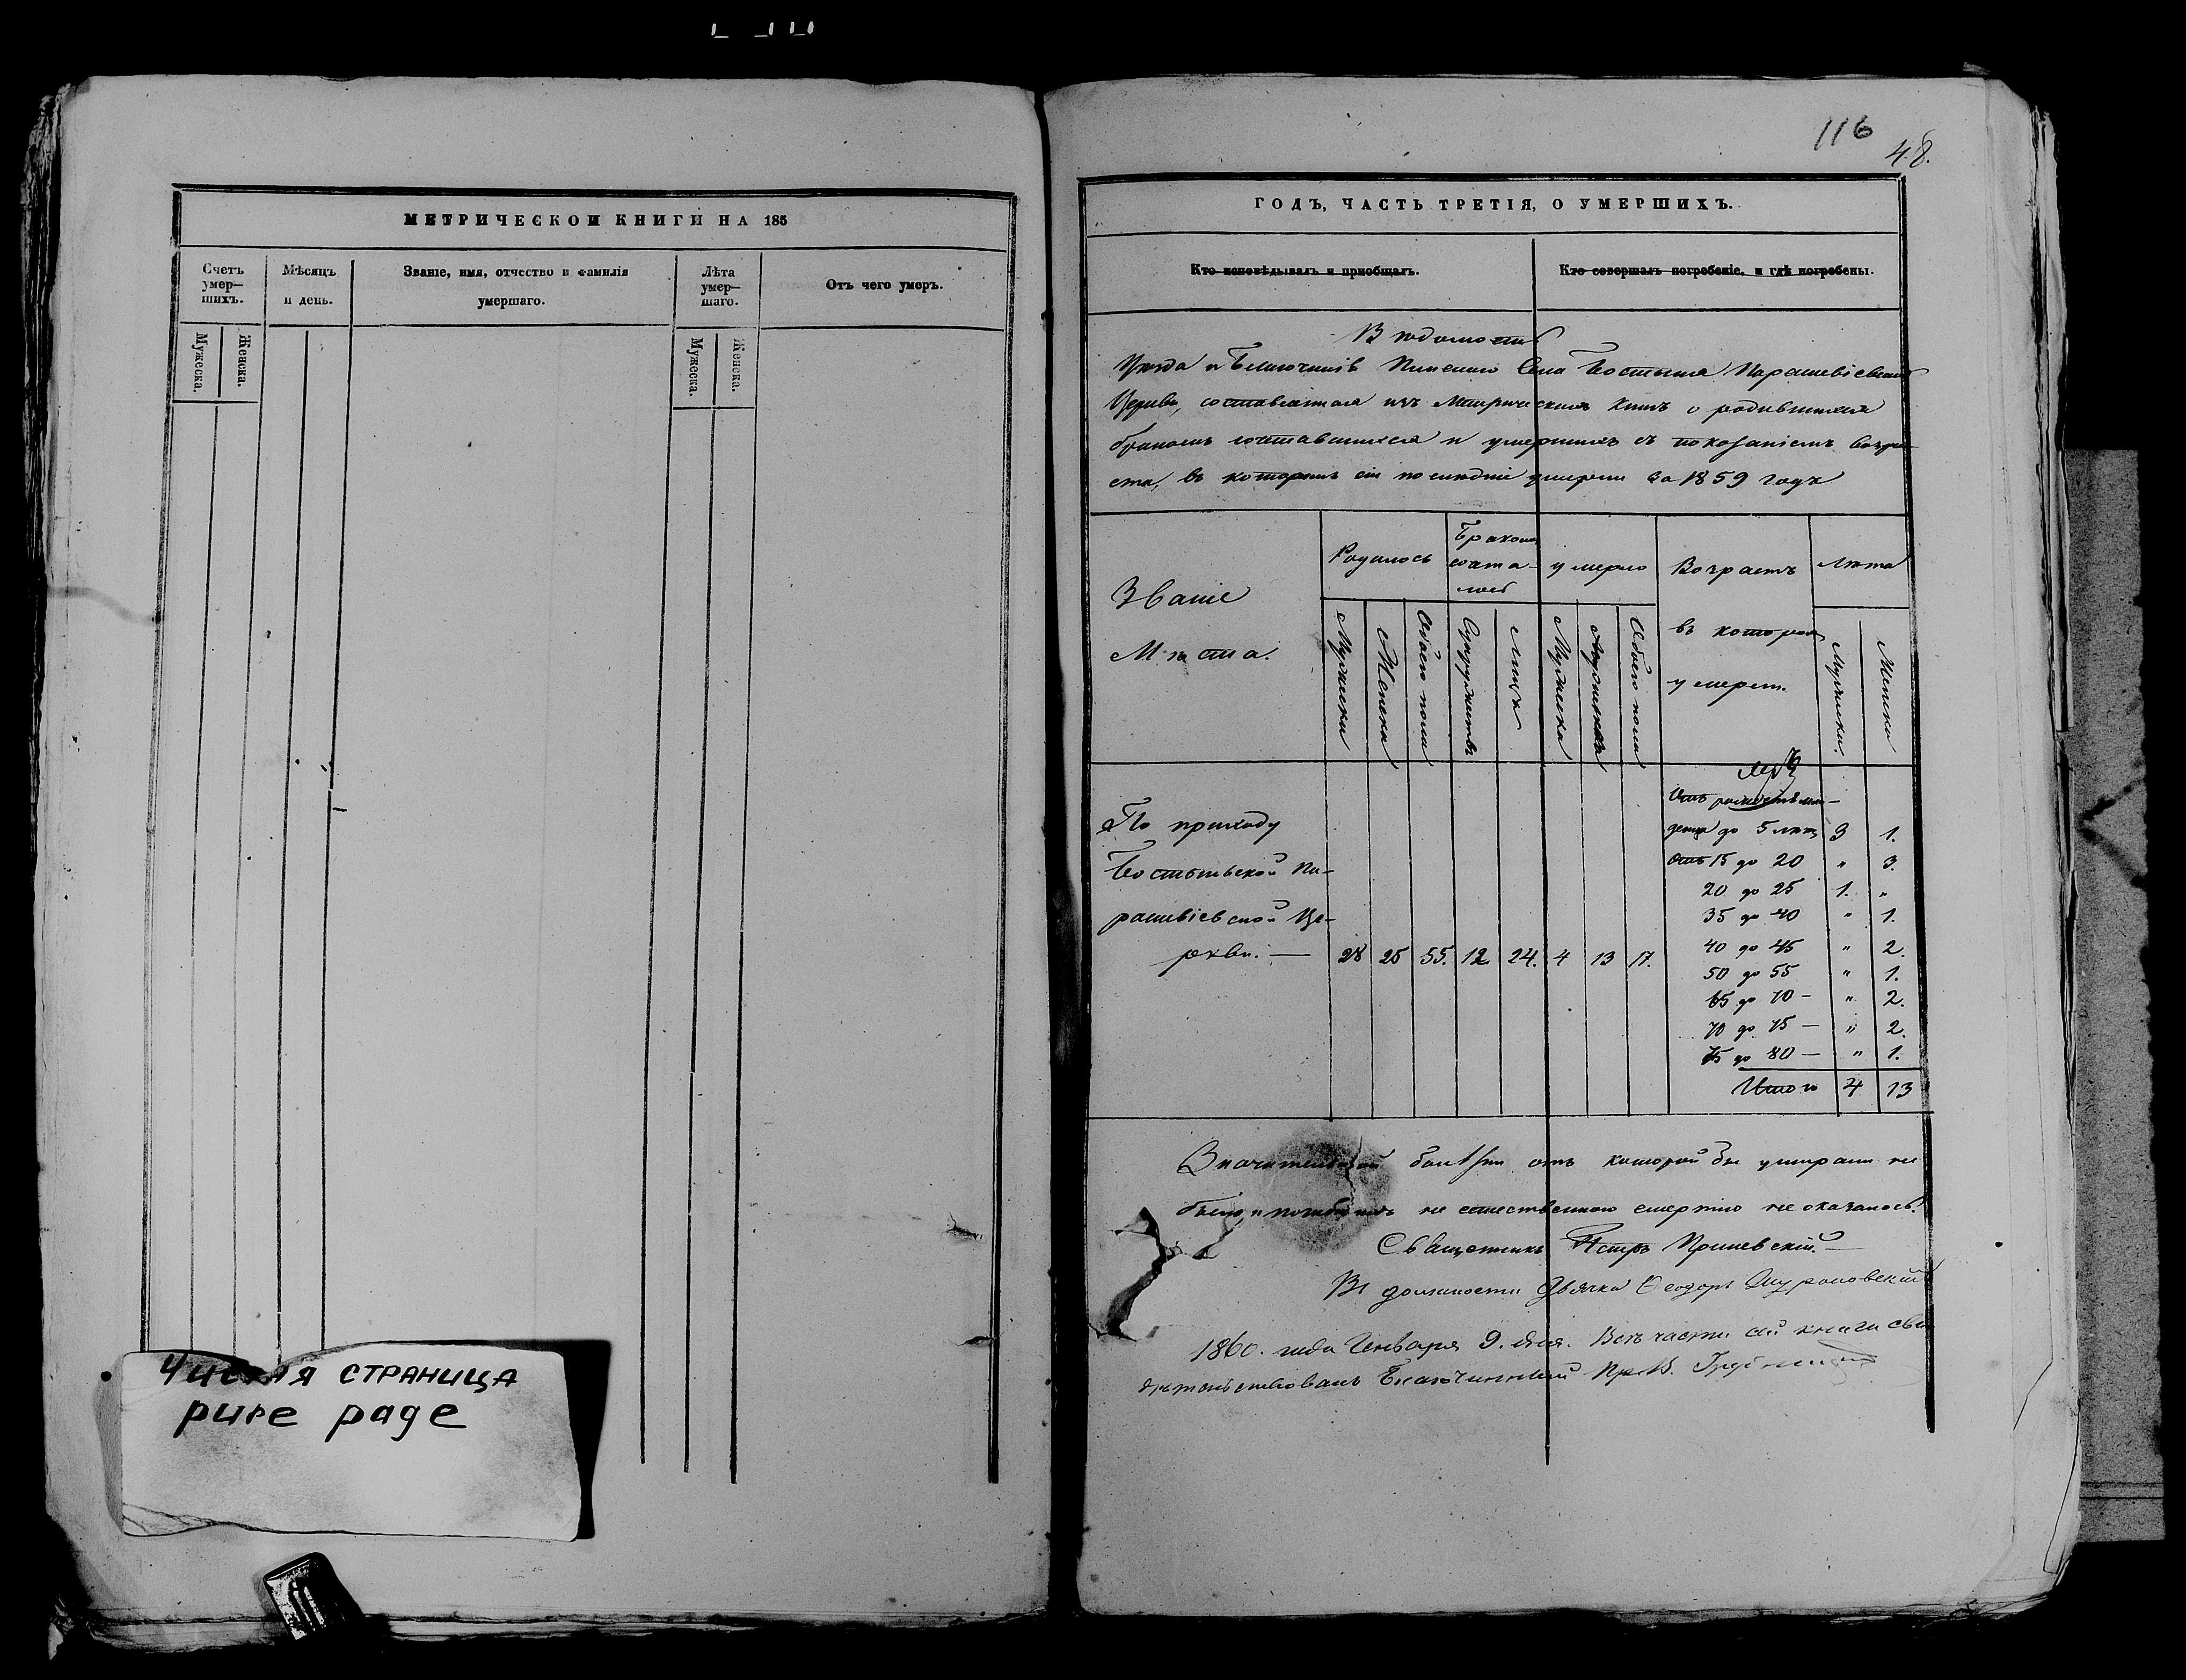 МЕТРИЧЕСКОЙ КНИГИ НА 185
Счетъ умер-шихъ.
Мѣсяцъ и день.
Званіе, имя, отчество и фамилія умершаго.
Лѣта умер-шаго.
Отъ чего умеръ.
Мужеска.
Женска.
Мужеска.
Женска.
Чистая страница
pure page
116
48.
ГОДЪ, ЧАСТЬ ТРЕТІЯ, О УМЕРШИХЪ.
Кто исповѣдывалъ и пріобщалъ.
Кто совершалъ погребеніе, и гдѣ погребены.
Вѣдомость
Уѣзда и Благочинія Пинскаго Села Бостыня Параскевіевской
Церкви, составленная изъ Метрическихъ Книгъ о родившихся
бракомъ сочтавшихся и умершихъ съ показаніемъ возра-
ста, въ которомъ сіи послѣдніе умерли за 1859 годъ
Званіе
Мѣста.
Родилось
Бракомъ
сочта-
лось
умерло
Возрастъ
въ которомъ
умерли.
Лѣта
Мужеска
Женска
Обоего пола
Супружествъ
Лицъ
Мужеска
Женска
Обоего пола
Мужеска.
Женска
По приходу
Бостынской Па-
раскевіевской Це-
ркви. —
28 25 55. 12. 24. 4 13 17.
Отъ рожденія мла-
денца до 5 лѣтъ 3 1.
Отъ 15 до 20 " 3.
20 до 25 1. "
35 до 40 " 1.
40 до 45 " 2.
50 до 55 " 1.
65 до 70 — " 2.
70 до 75 — " 2.
75 до 80 — " 1.
Итого 4 13
Значительной болѣзни отъ которой бы умирали не
было, и погибшихъ не естественною смертію не оказалось.
Священникъ Петръ
Въ должности Дьячка Ѳеодоръ
1860. года Генваря 9. дня. Всѣ части сей книги сви-
дѣтельствовалъ Благочинный